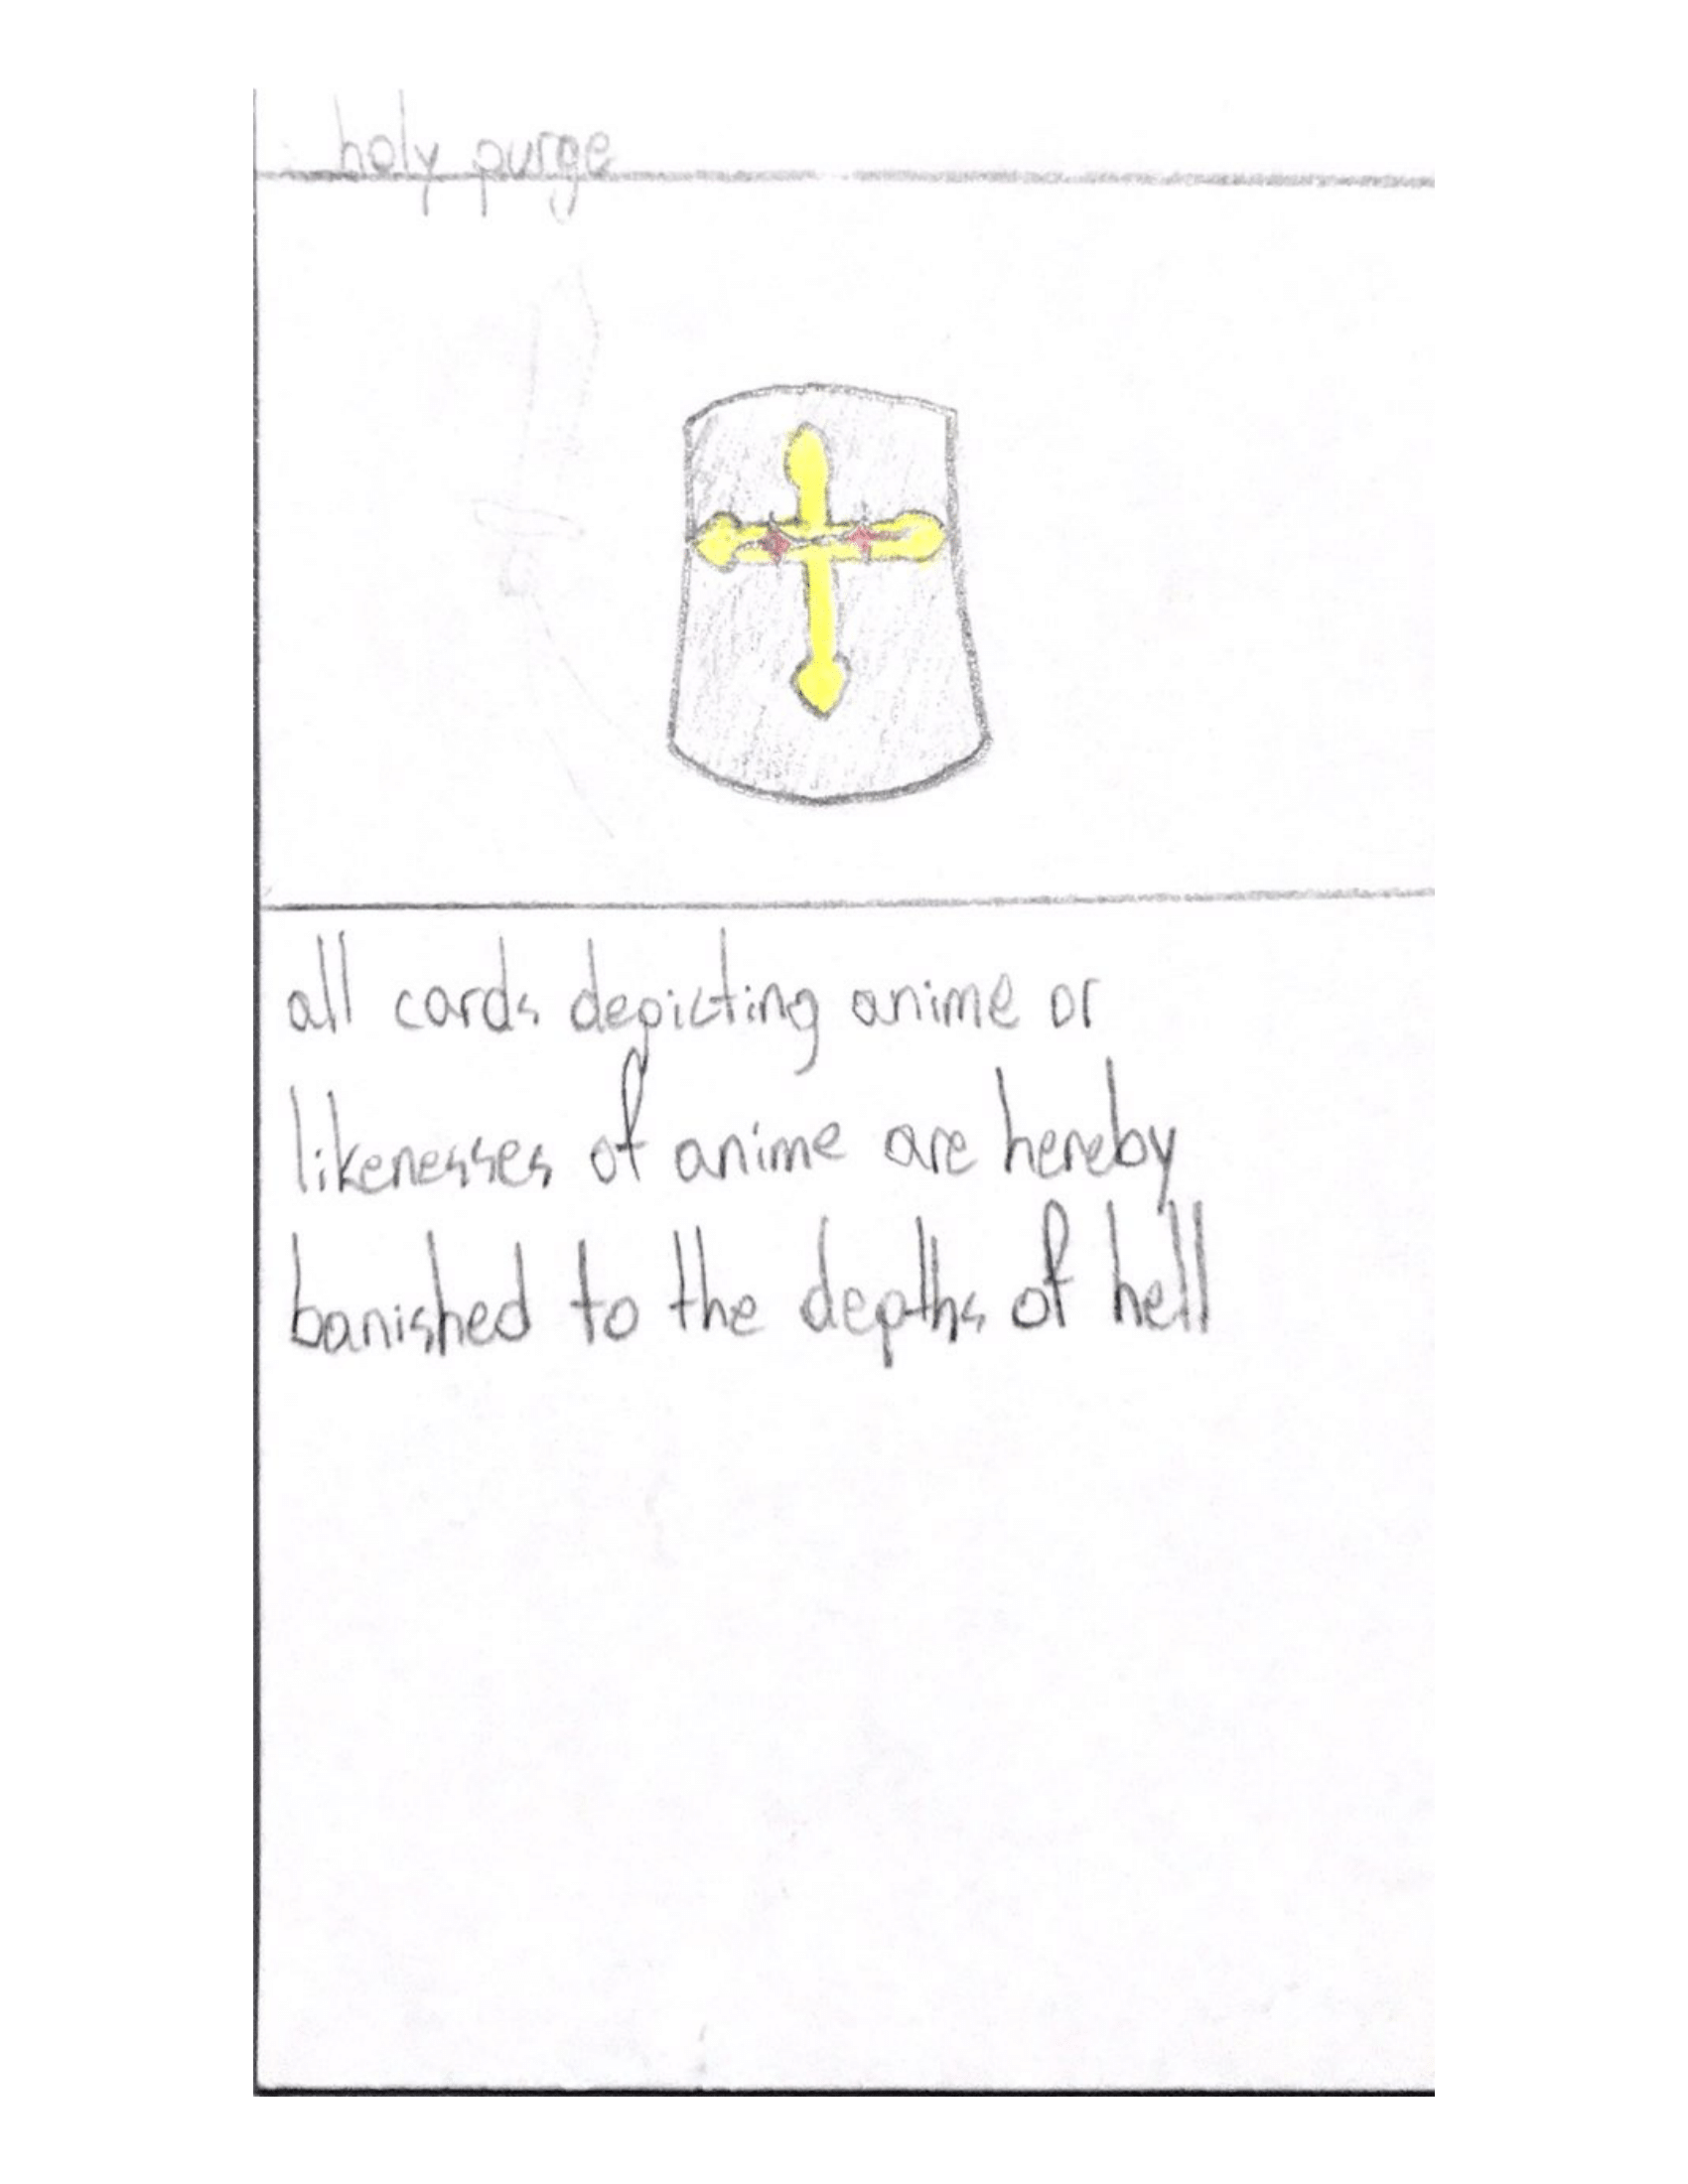 holy purge
all cards depicting anime or
likenesses of anime are hereby
banished to the depths of hell